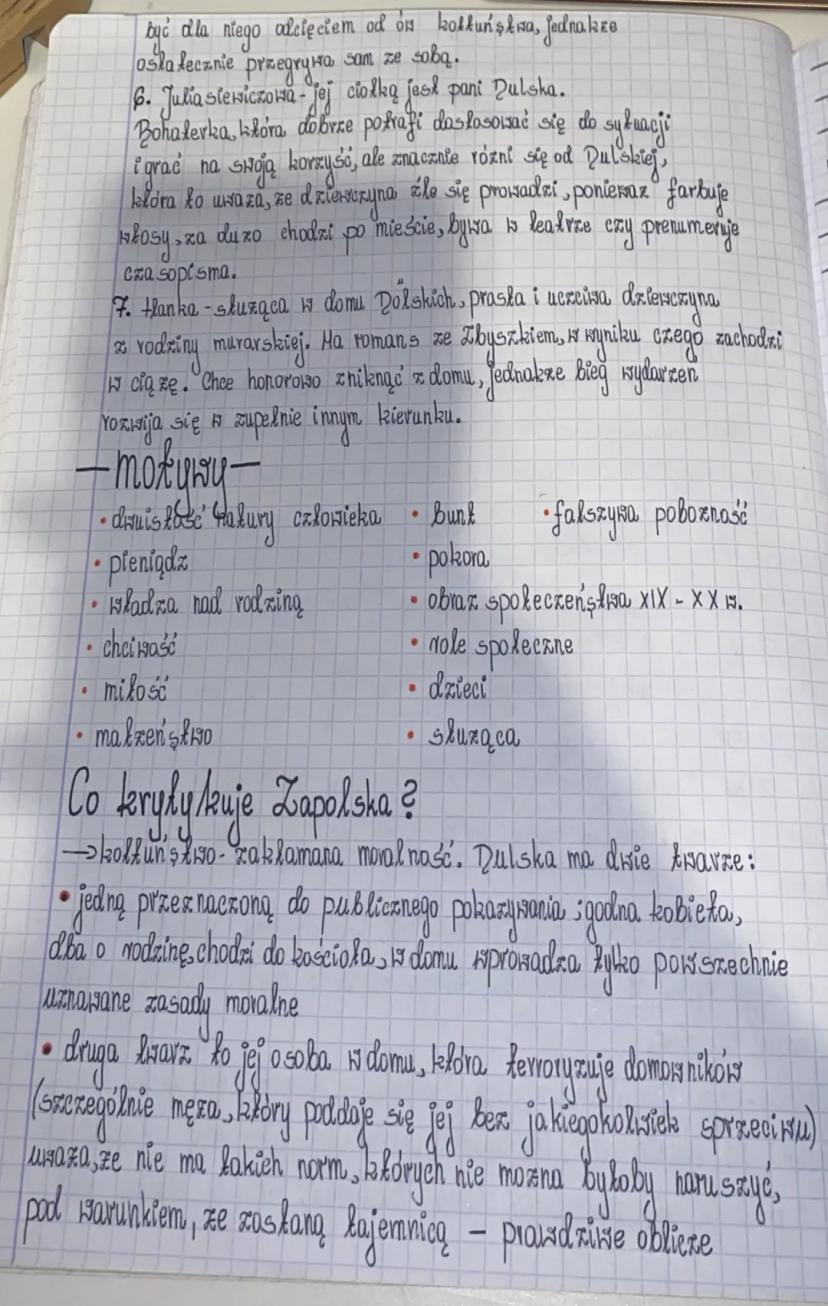 być dla niego odcięciem od ów kołtuństwa, jednakże
ostatecznie przegrywa sam ze sobą.
6. Juliasiewiczowa - jej ciotką jest pani Dulska.
Bohaterka, która dobrze potrafi dostosować się do sytuacji
i grać na swoją korzyść, ale znacznie różni się od Dulskiej,
która to uważa, że dziewczyna źle się prowadzi, ponieważ farbuje
włosy, za dużo chodzi po mieście, bywa w teatrze czy prenumeruje
czasopisma.
7. Hanka - służąca w domu Dulskich, prosta i uczciwa dziewczyna
z rodziny murarskiej. Ma romans ze Zbyszkiem, w wyniku czego zachodzi
w ciążę. Chce honorowo zniknąć z domu, jednakże bieg wydarzeń
rozwija się w zupełnie innym kierunku.
— motywy —
• dwuistość natury człowieka • bunt • fałszywa pobożność
• pieniądz • pokora
• władza nad rodziną • obraz społeczeństwa XIX - XX w.
• chciwość • role społeczne
• miłość • dzieci
• małżeństwo • służąca
Co krytykuje Zapolska?
→ kołtuństwo - zakłamana moralność. Dulska ma dwie twarze:
• jedną przeznaczoną do publicznego pokazywania : godna kobieta,
dba o rodzinę, chodzi do kościoła, w domu wprowadza tylko powszechnie
uznawane zasady moralne
• druga twarz to jej osoba w domu, która terroryzuje domowników
(szczególnie męża, który poddaje się jej bez jakiegokolwiek sprzeciwu)
uważa, że nie ma takich norm, których nie można byłoby naruszyć,
pod warunkiem, że zostaną tajemnicą — prawdziwe oblicze